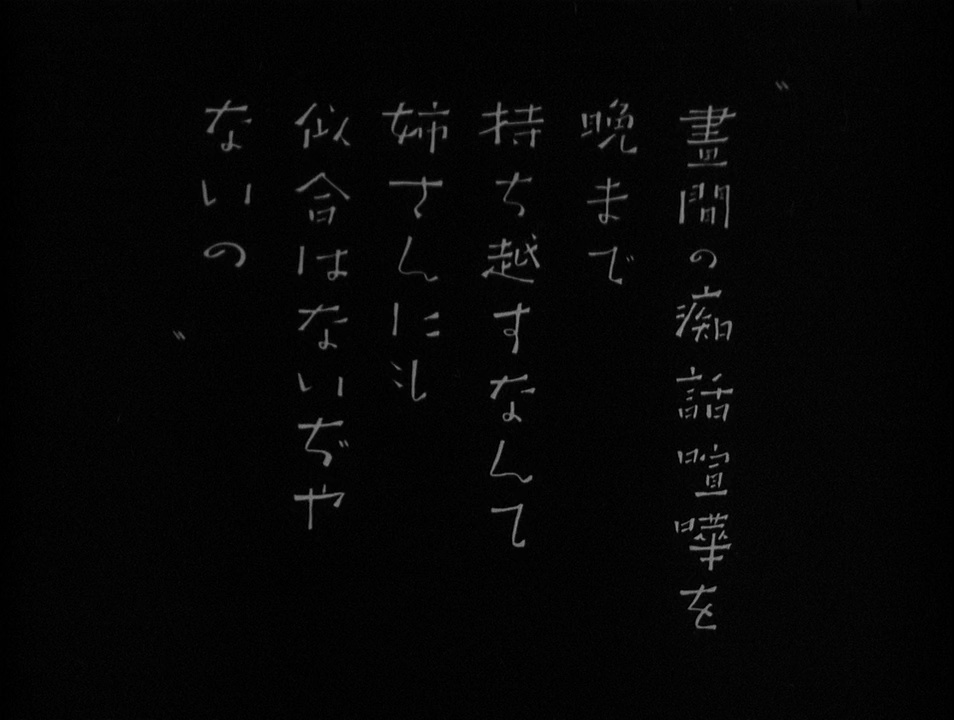 〝晝間の痴話喧嘩を
晩まで
持ち越すなんて
姉さんにも
似合はないぢや
ないの〟